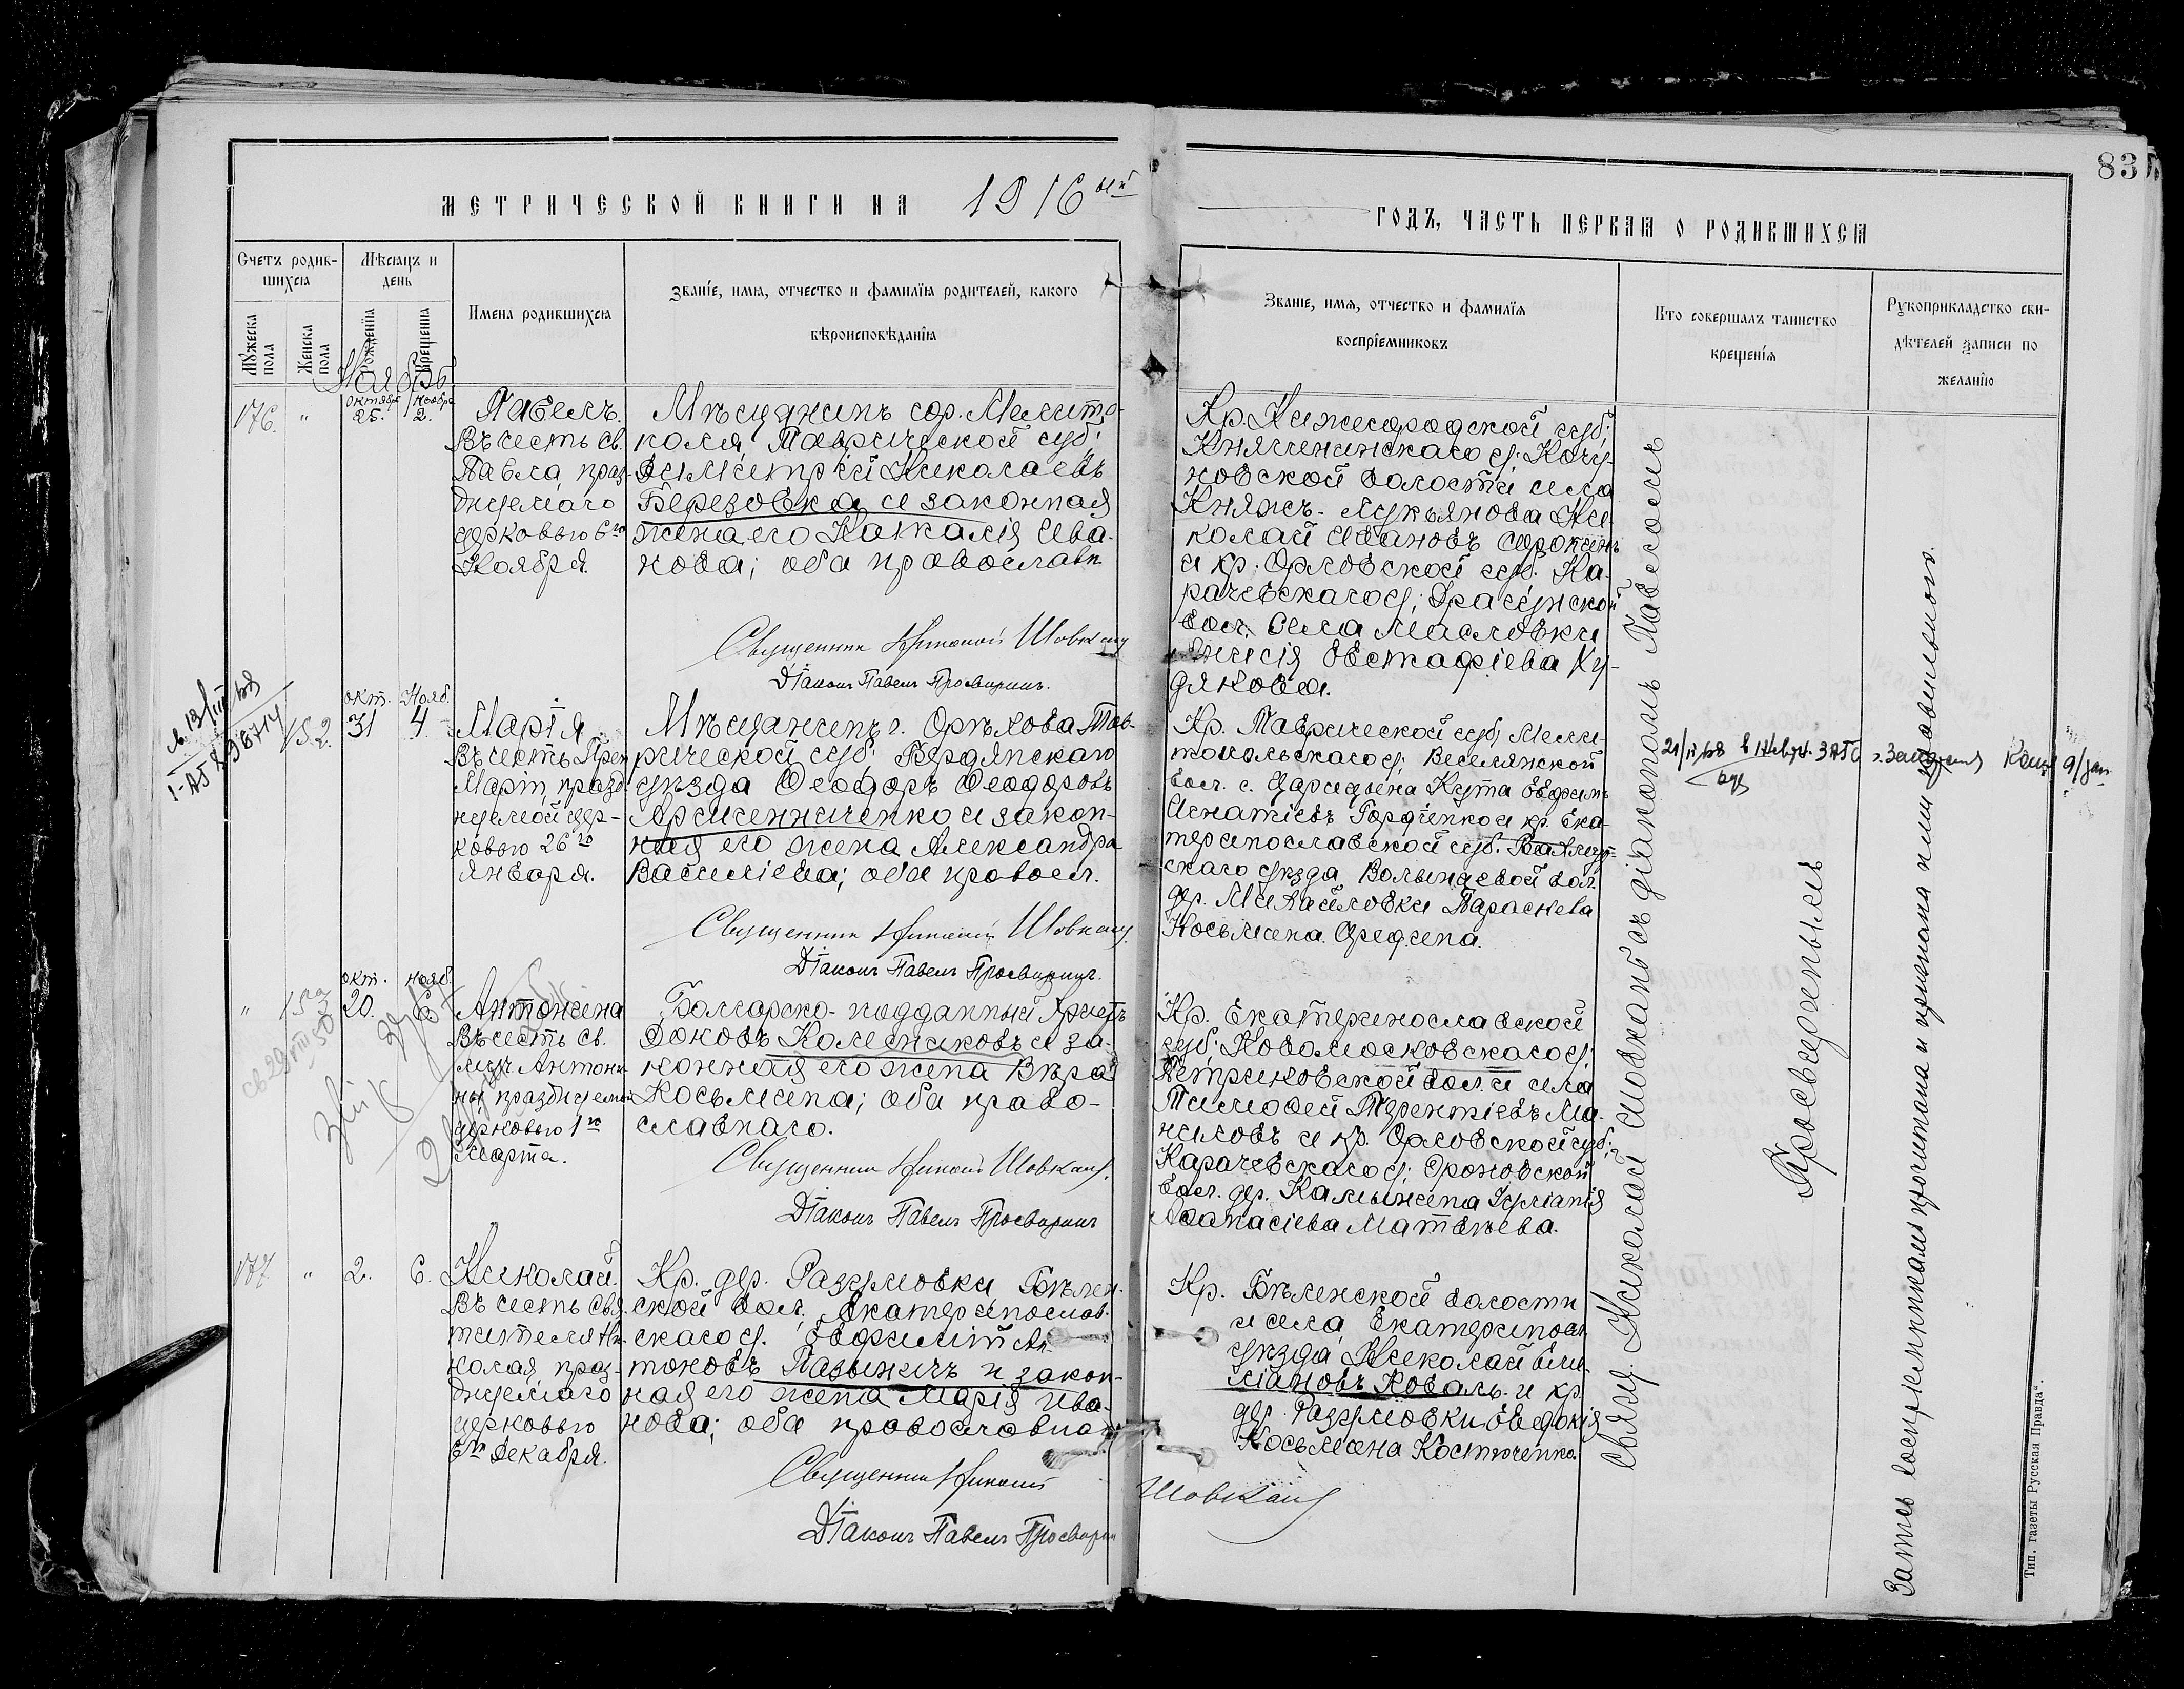 83
МЕТРИЧЕСКОЙ КНИГИ НА 1916 ый
ГОДЪ, ЧАСТЬ ПЕРВАЯ О РОДИВШИХСЯ
Счетъ родив-
шихся
Мѣсяцъ и
день
Мужеска
пола
Женска
пола
Рожденія
Крещенія
Имена родившихся
Званіе, имя, отчество и фамилія родителей, какого
вѣроисповѣданія
Званіе, имя, отчество и фамилія
воспріемниковъ
Кто совершалъ таинство
крещенія
Рукоприкладство сви-
дѣтелей записи по
желанію
Ноябрь
176. " октября 25. ноября 2.
Павелъ.
Въ честь св.
Павла, праз-
днуемаго
церковью 6го
Ноября.
Мѣщанинъ гор. Мелито-
поля, Таврической губ.
Димитрій Николаевъ
Березовка и законная
жена его Наталія Ива-
нова; оба православн.
Священник Николай Шовкань
Діаконъ Павелъ Просвиринъ.
Кр. Нижегородской губ.
Княгининскаго у;
новской волости села
Княжъ-Лукьянова Ни-
колай Ивановъ Сорокинъ
и кр. Орловской губ. Ка-
рачевскаго у;
вол. села Масловки
Евстафіева Ку-
дякова.
152. окт. 31 Нояб. 4
Марія
Въ честь Прен
Маріи, празд-
нуемой цер-
ковью 26го
Января.
Мѣщанинъ г. Орѣхова Тав-
рической губ. Бердянскаго
уѣзда Ѳеодоръ Ѳеодоровъ
и закон-
ная его жена Александра
Василіева; оба правосл.
Священник Николай Шовкань.
Діаконъ Павелъ Просвиринъ.
Кр. Таврической губ, Мели-
топольскаго у; Веселянской
вол. с. Царицына Кута Евфимъ
Игнатіевъ Гордіенко и кр. Ека-
теринославской губ. Бахмут-
скаго уѣзда Волынцевой вол.
дер. Михайловки Параскева
Косьмина
" 153 окт. 20. нояб. 6
Антонина
Въ честь св.
муч Антони
ны празднуемой
церковью 1го
Марта.
Болгарско-подданный Христъ
Доковъ Колениковъ и за-
конная его жена Вѣра
Косьмина; оба право-
славнаго.
Священник Николай Шовкань.
Діаконъ Павелъ Просвиринъ
Кр. Екатеринославской
губ. Новомосковскаго у;
Петриковской вол. и села
Тимофей Терентіевъ Ма-
ниловъ и кр. Орловской губ;
Карачевскаго у;
вол. дер. Іуліанія
Аѳанасіева Матвѣева.
177. " 2. 6.
Николай.
Въ честь Свя-
тителя Ни-
колая, праз-
днуемаго
церковью
6го Декабря.
Кр. дер. Разумовки Бѣлен-
ской вол, Екатеринослав-
скаго у. Евфимій Ан-
тоновъ и закон-
ная его жена Марія Ива-
нова; оба православна
Священник Николай Шовкань
Діаконъ Павелъ Просвирин
Кр. Бѣленской волости
и села, Екатеринославск
уѣзда Николай Еми-
ліановъ Коваль и кр.
дер. Разумовки Евдокія
Косьмина Костюченко.
Свящ. Николай Шовкань съ діакономъ Павломъ
Просвиринымъ
Запись воспріемниками прочитана и признана ими правильною.
Тип. газеты „Русская Правда“.